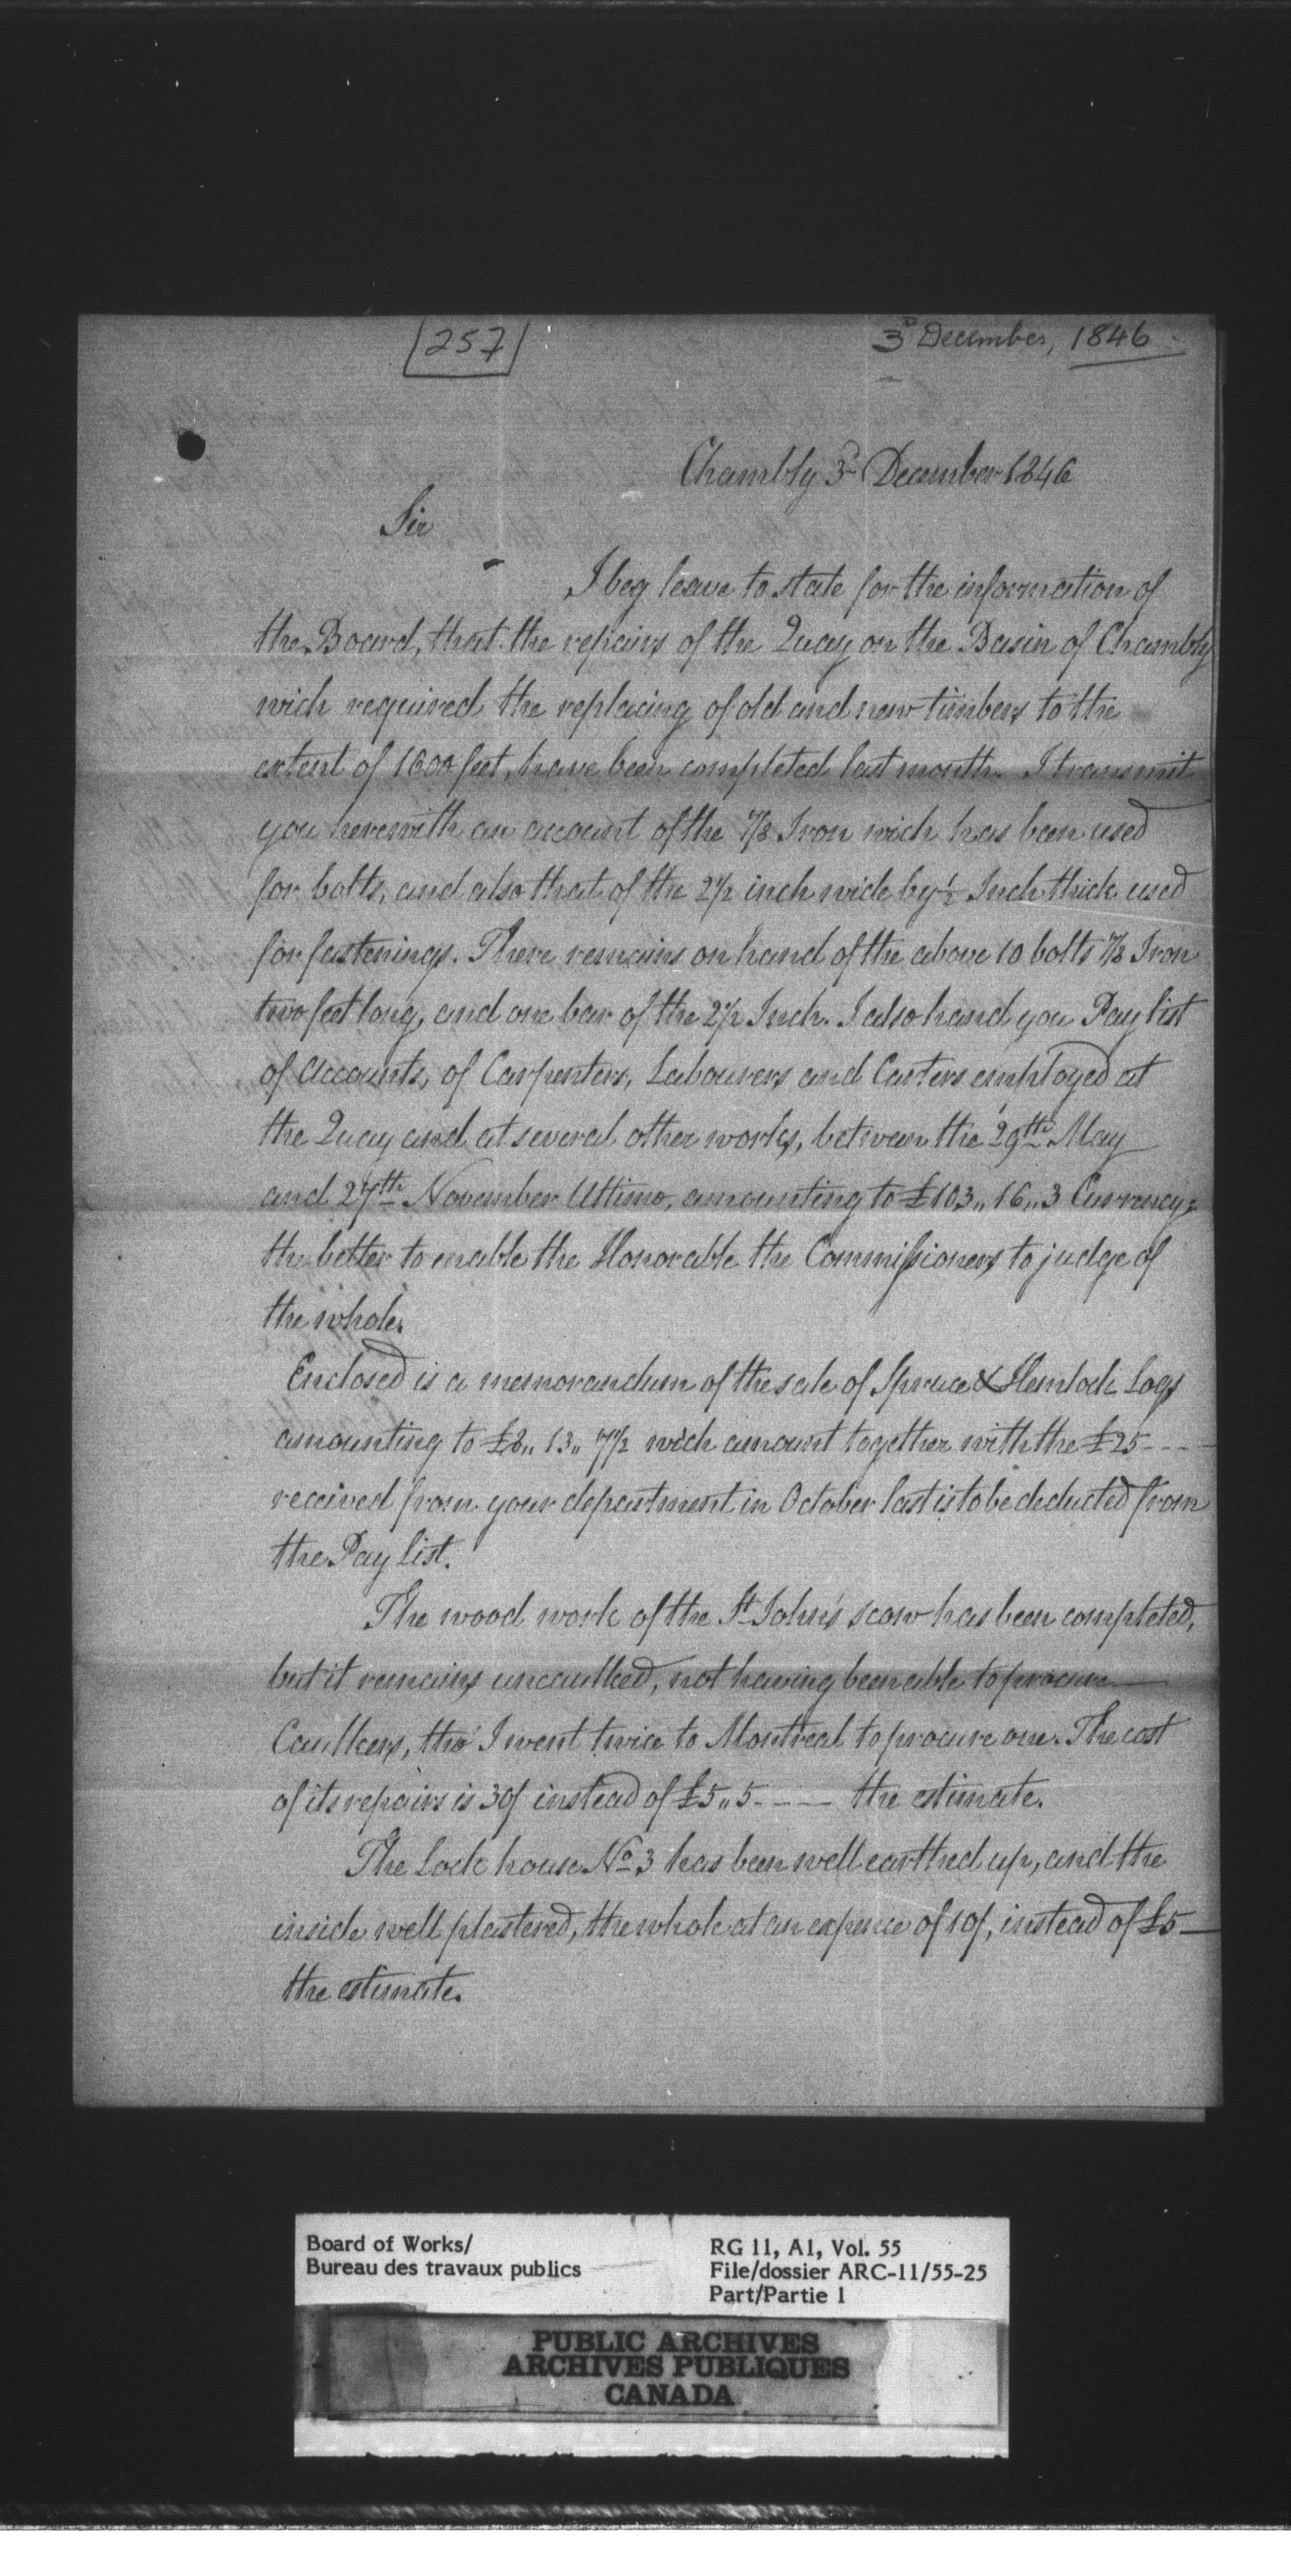 257
3D December, 1846
Chambly 3d December 1846
Sir
I beg leave to state for the information of
the Board, that the repairs of the Quay on the Basin of Chambly
wich required the replacing of old and new timbers to the
extent of 1600 feet, have been completed last month. I transmit
you herewith an account of the 7/8 Iron wich has been used
for bolts, and also that of the 2 1/2 inch wide by 1/2 Inch thick used
for fastenings. There remains on hand of the above 10 bolts 7/8 Iron
two feet long, and one bar of the 2 1/2 Inch. I also hand you Pay list
of Accounts, of Carpenters, Labourers and Carters employed at
the Quay and at several other works, between the 29th May
and 27th November Ultimo, amounting to £103,, 16,, 3 Currency,
the better to enable the Honorable the Commissioners to judge of
the whole.
Enclosed is a memorandum of the sale of Spruce & Hemlock Logs
amounting to £8,, 13,, 7 1/2 wich amount together with the £25 - - -
received from your department in October last is to be deducted from
the Pay list.
The wood work of the St John's scow has been completed,
but it remains uncaulked, not having been able to procure
Caulkers, tho' I went twice to Montreal to procure one. The cost
of its repairs is 30/ instead of £5,, 5 - - - the estimate.
The Lock house No 3 has been well earthed up, and the
inside well plastered, the whole at an expence of 10/, instead of £5 -
the estimate.
Board of Works/
Bureau des travaux publics
RG 11, A1, Vol. 55
File/dossier ARC-11/55-25
Part/Partie 1
PUBLIC ARCHIVES
ARCHIVES PUBLIQUES
CANADA